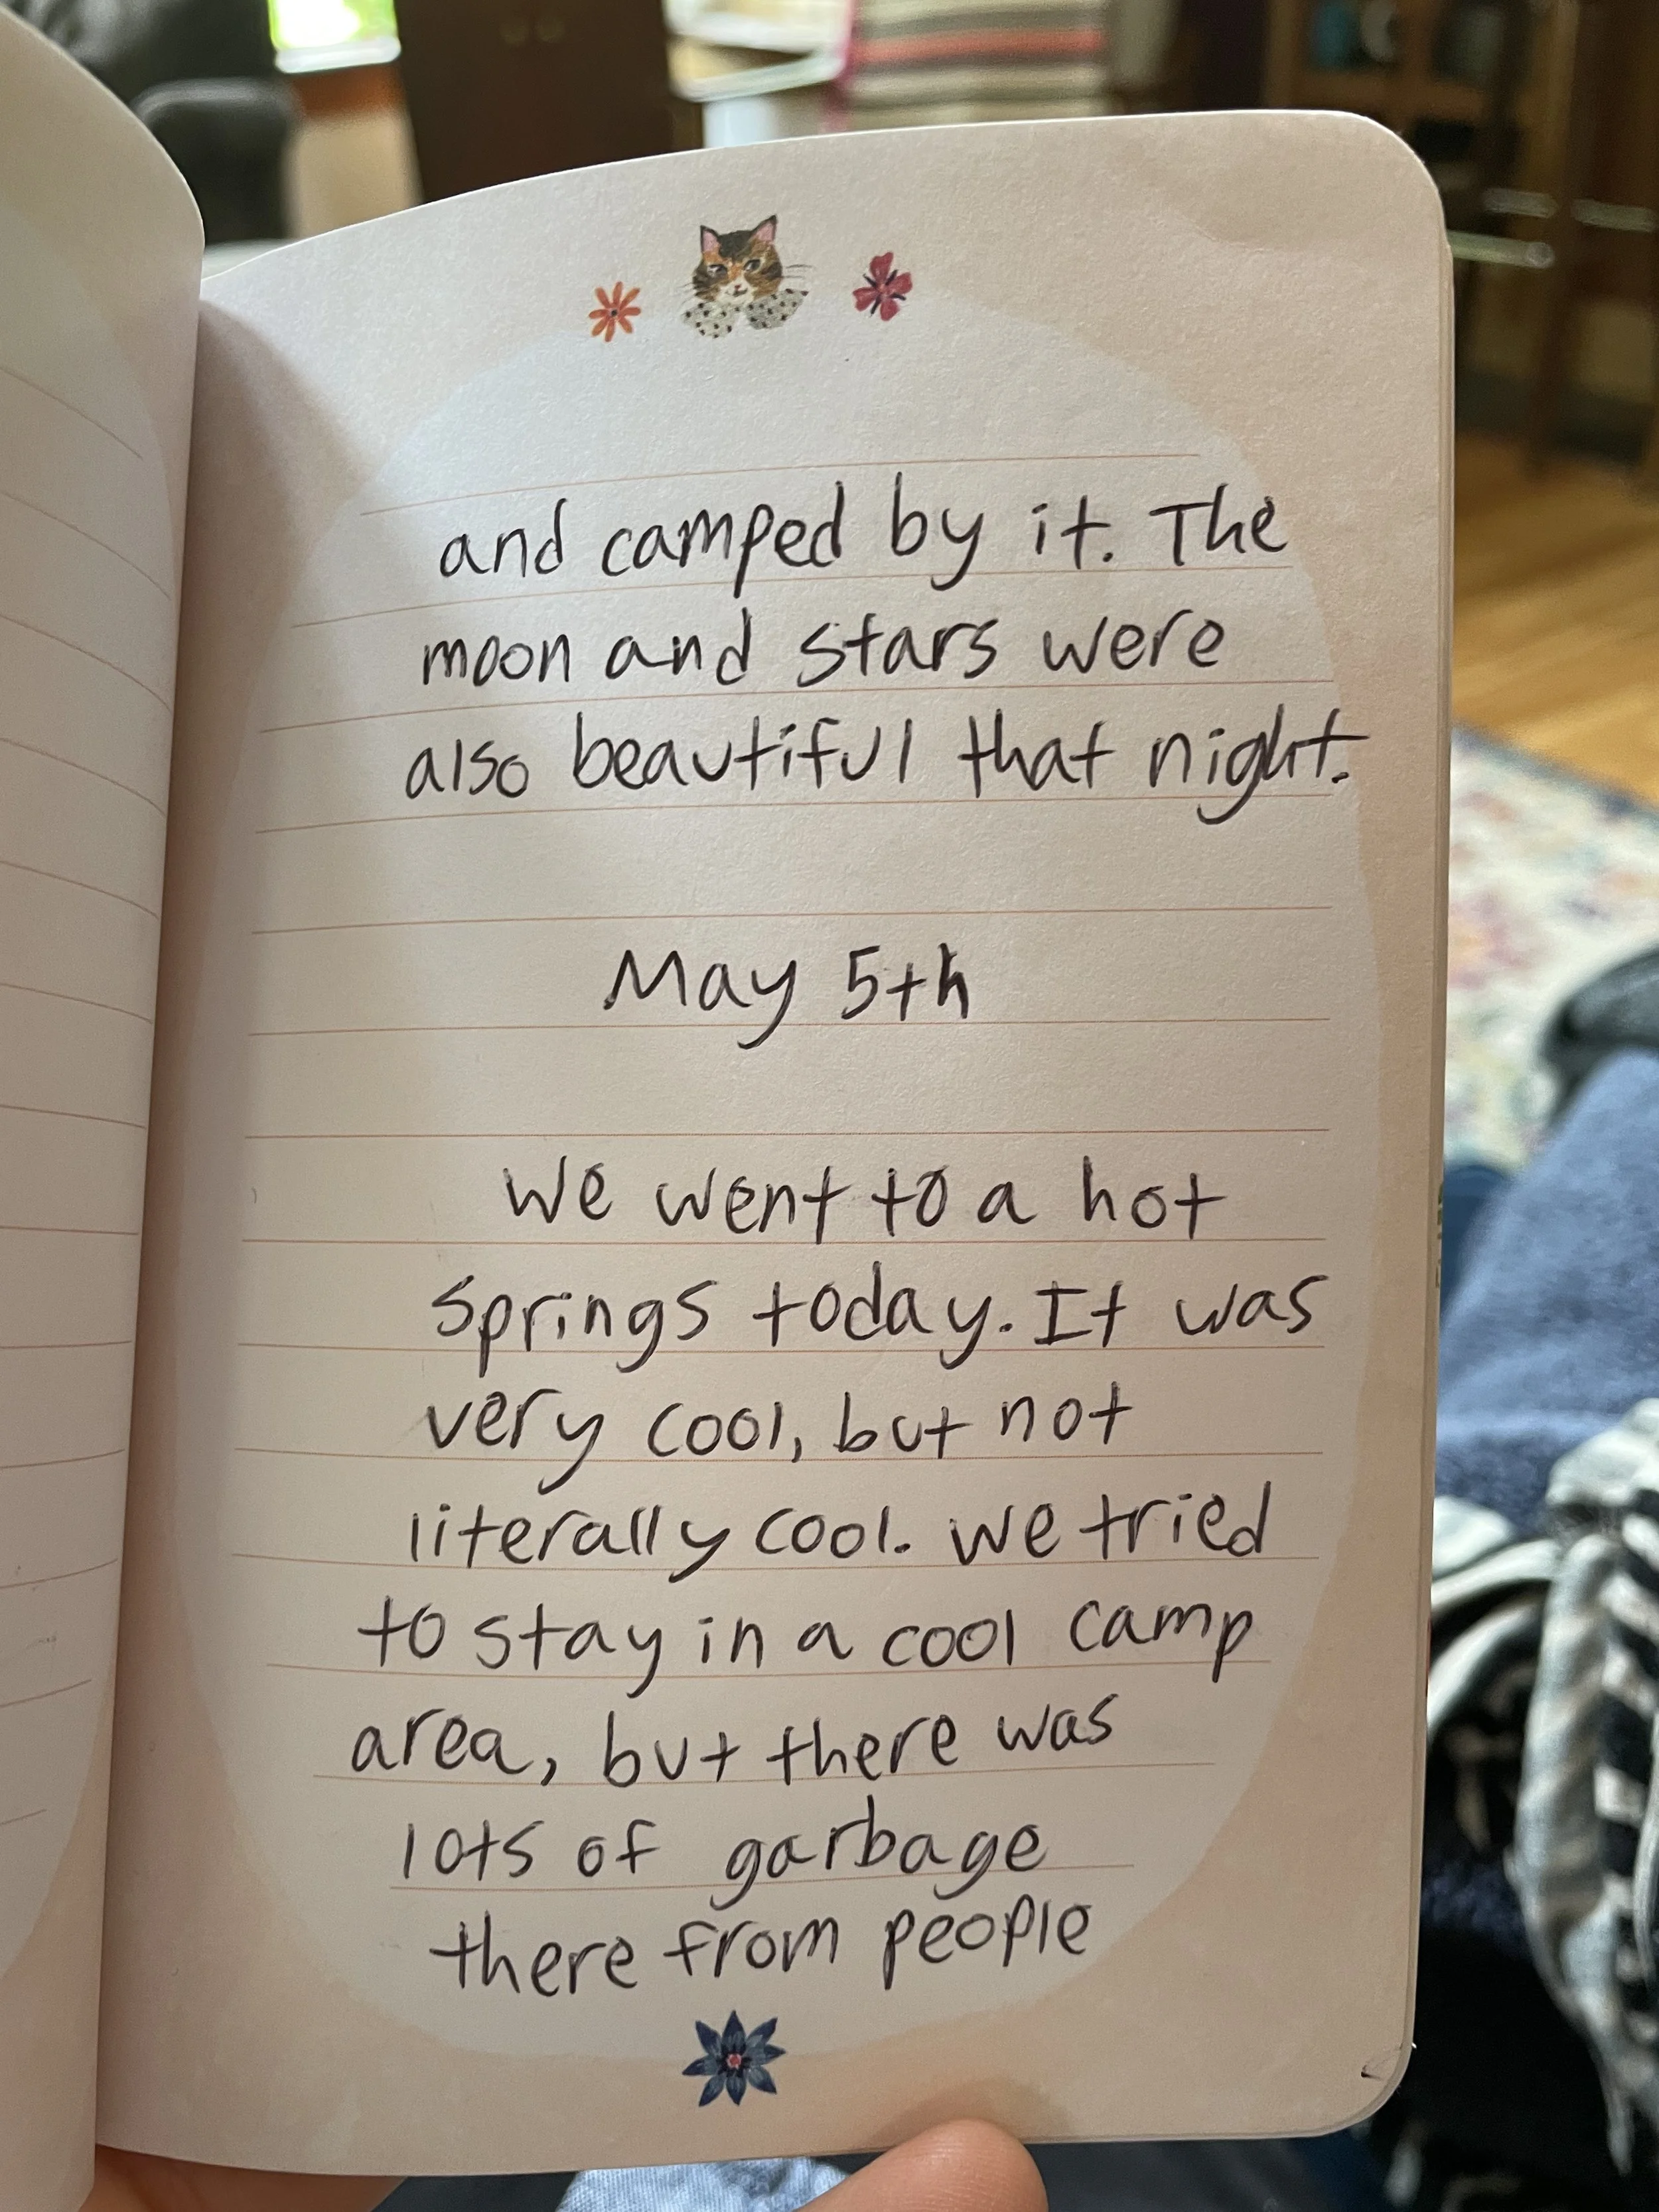 and camped by it. The
moon and stars were
also beautiful that night.
May 5th
We went to a hot
springs today. It was
very cool, but not
literally cool. We tried
to stay in a cool camp
area, but there was
lots of garbage
there from people